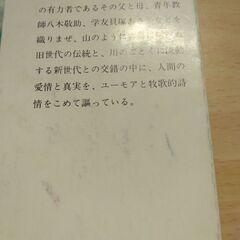 の有力者であるその父と母、青年教
師八木敬助、学友貝塚
織りまぜ、山のように
旧世代の伝統と、川のごとく
する新世代との交錯の中に、人間の
愛情と真実を、ユーモアと牧歌的詩
情をこめて謳っている。